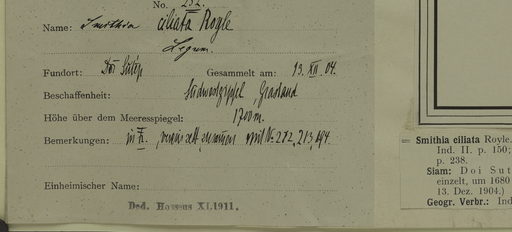 No. 232.
Name: Smithia ciliata Royle
Legum.
Fundort: Doi Sutep Gesammelt am: 13. XII. 04.
Beschaffenheit: Südwestgipfel, Grasland
Höhe über dem Meeresspiegel: 1700 m.
Bemerkungen: zusammen mit No 212, 213, 194.
Einheimischer Name:
Ded. Hosseus XI.1911.
= Smithia ciliata Royle.
Ind. II. p. 150;
p. 238.
Siam: Doi Sut
einzelt, um 1680
13. Dez. 1904.)
Geogr. Verbr.: Ind